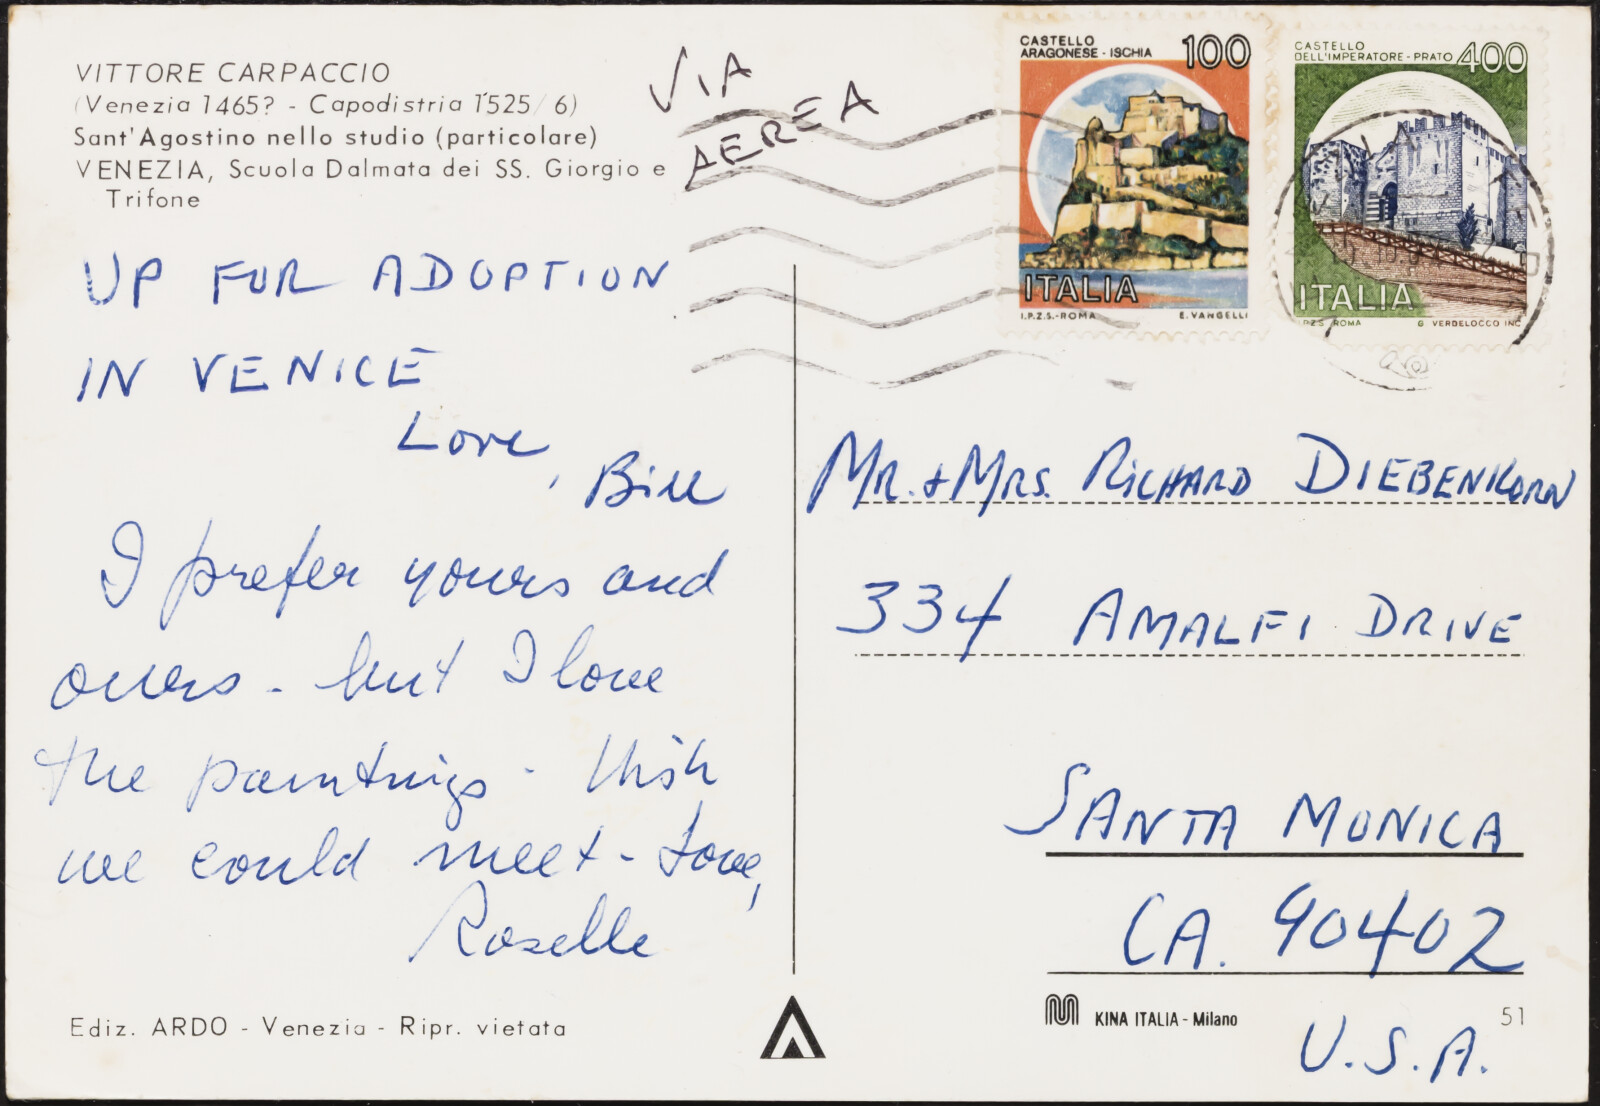 VITTORE CARPACCIO
(Venezia 1465? - Capodistria 1525/6)
Sant'Agostino nello studio (particolare)
VENEZIA, Scuola Dalmata dei SS. Giorgio e
Trifone
VIA
AEREA
CASTELLO
ARAGONESE - ISCHIA 100
ITALIA
I.P.Z.S. - ROMA E. VANGELLI
CASTELLO
DELL'IMPERATORE - PRATO 400
ITALIA
I.P.Z.S. ROMA G VERDELOCCO INC
UP FOR ADOPTION
IN VENICE
Love,
Bill
I prefer yours and
ours - but I love
the paintings - Wish
we could meet - Love,
Roselle
MR. + MRS. RICHARD DIEBENKORN
334 AMALFI DRIVE
SANTA MONICA
CA. 90402
U.S.A.
Ediz. ARDO - Venezia - Ripr. vietata
KINA ITALIA - Milano
51